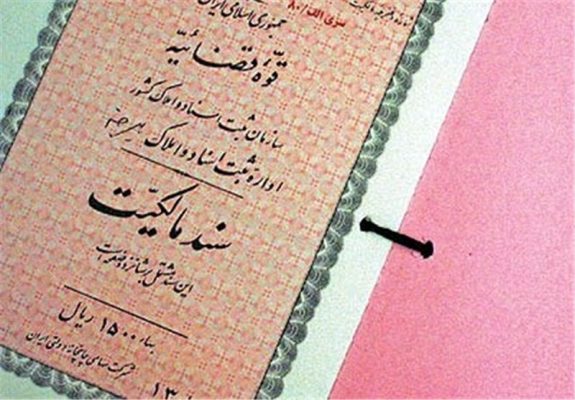 سری الف/۸۰
جمهوری اسلامی ایران
قوّه قضائیّه
سازمان ثبت اسناد و املاک کشور
اداره ثبت اسناد و املاک
سند مالکیّت
این سند مشتمل بر شانزده صفحه است
بهاء ۱۵۰۰ ریال
شرکت سهامی چاپخانه دولتی ایران